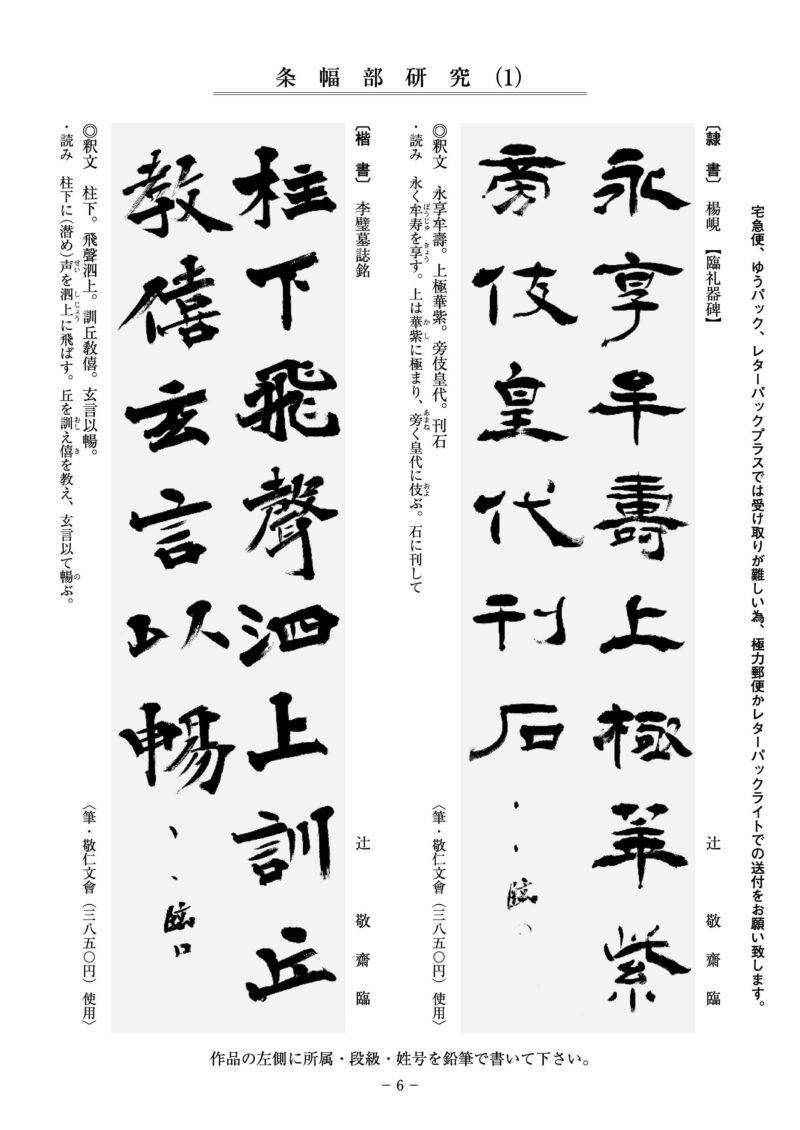 条幅部研究 (1)
宅急便、ゆうパック、レターパックプラスでは受け取りが難しい為、極力郵便かレターパックライトでの送付をお願い致します。
〔隷書〕 楊峴 【臨礼器碑】
辻敬齋臨
永享牟壽上極華紫
旁伎皇代刊石
、、臨
◎釈文 永享牟壽。上極華紫。旁伎皇代。刊石
〈筆・敬仁文會(三八五〇円)使用〉
・読み 永く牟寿を享す。上は華紫に極まり、旁く皇代に伎ぶ。石に刊して
ぼうじゅ きょう かし あまね およ
〔楷書〕 李璧墓誌銘
辻敬齋臨
柱下飛聲泗上訓丘
教僖玄言以暢
、、臨口
◎釈文 柱下。飛聲泗上。訓丘教僖。玄言以暢。
〈筆・敬仁文會(三八五〇円)使用〉
・読み 柱下に(潜め)声を泗上に飛ばす。丘を訓え僖を教え、玄言以て暢ぶ。
せい しじょう おし き の
作品の左側に所属・段級・姓号を鉛筆で書いて下さい。
− 6 −